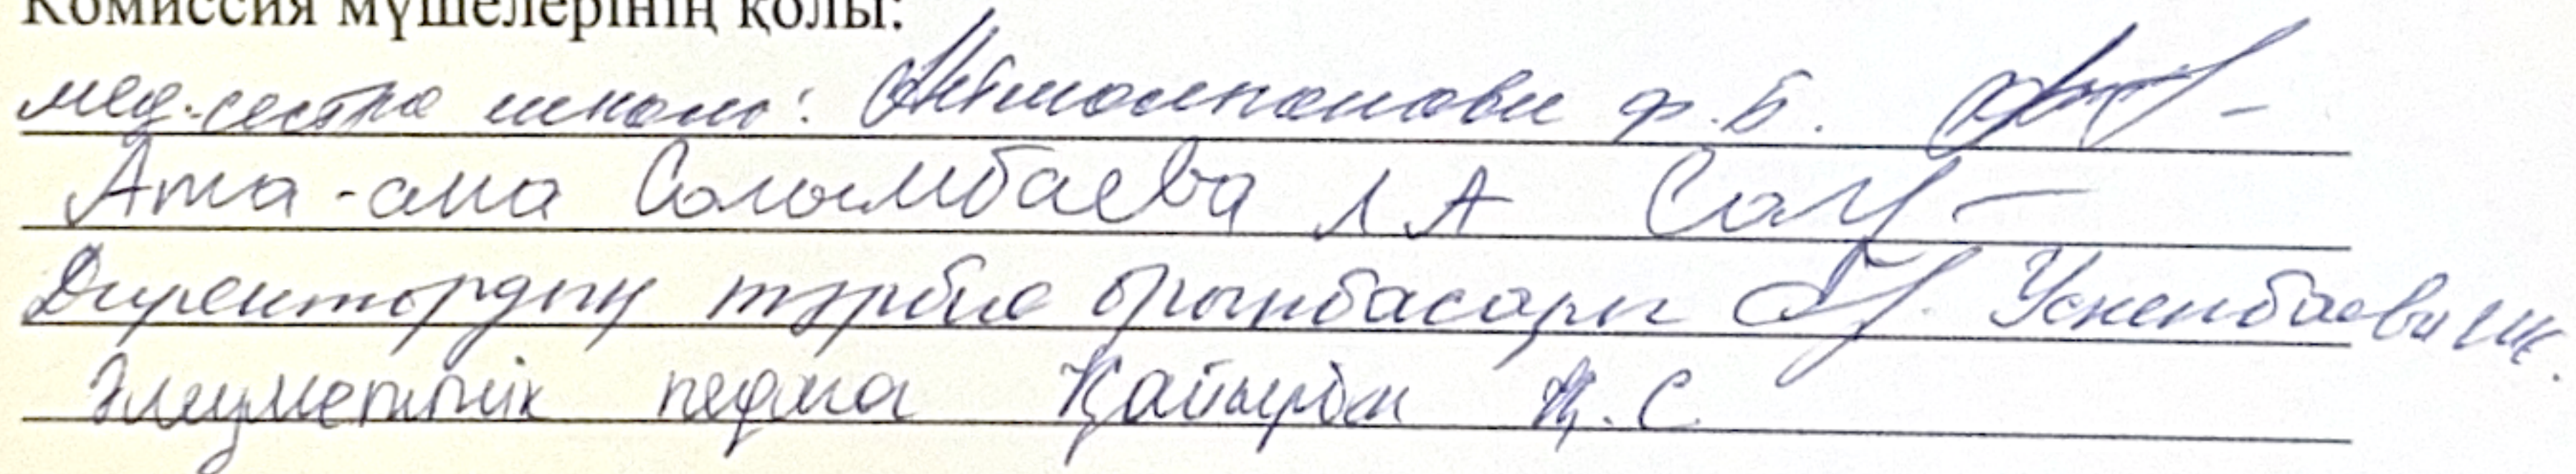 Комиссия мүшелерінің қолы:
мед.сестра школы: Ф.Б.
Ата-ана Салымбаева Л А
Директордың тәрбие орынбасары Усненбаевич
Әлеуметтік педагог Қ.С.